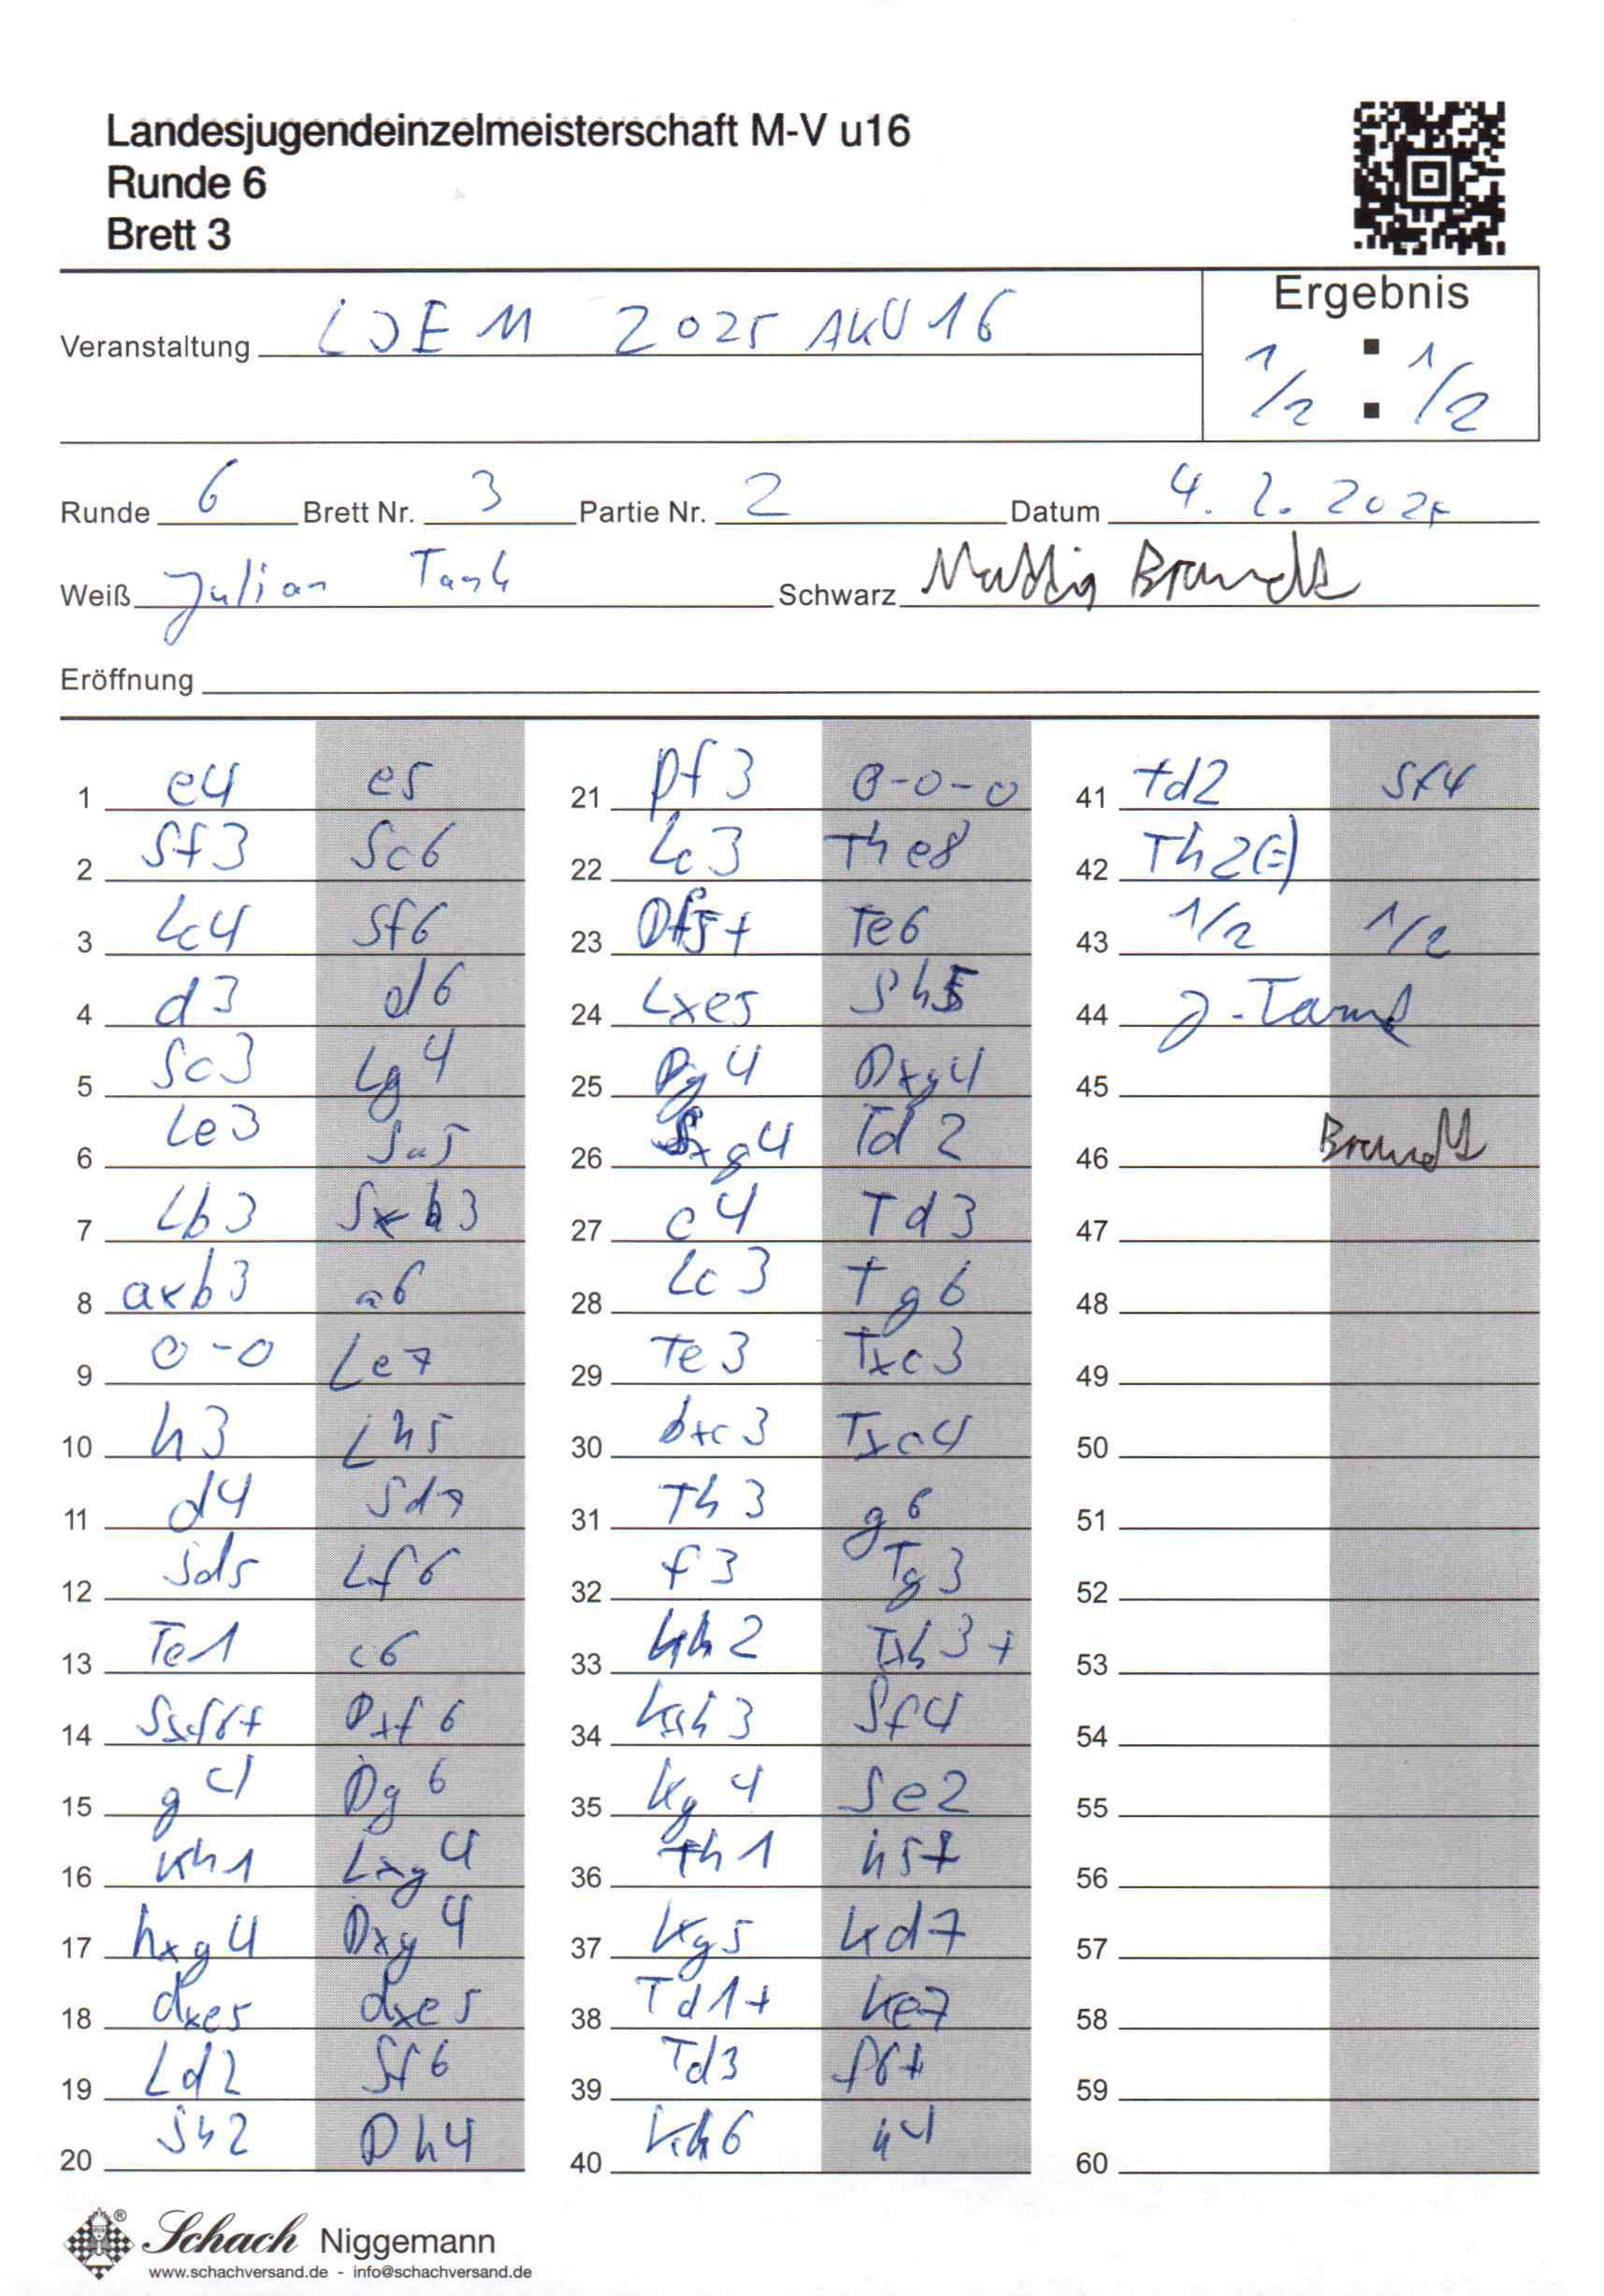 Landesjugendeinzelmeisterschaft M-V u16
Runde 6
Brett 3
Ergebnis
Veranstaltung LJEM 2025 AKU16
1/2 : 1/2
Runde 6 Brett Nr. 3 Partie Nr. 2 Datum 4. 2. 2025
Weiß Julian Schwarz Brandt
Eröffnung
1 e4 e5
2 Sf3 Sc6
3 Lc4 Sf6
4 d3 d6
5 Sc3 Lg4
6 Le3 Sa5
7 Lb3 Sxb3
8 axb3 a6
9 0-0 Le7
10 h3 Lh5
11 d4 Sd7
12 Sd5 Lf6
13 Te1 c6
14 Sxf6+ Dxf6
15 g4 Dg6
16 Kh1 Lxg4
17 hxg4 Dxg4
18 dxe5 dxe5
19 Ld2 Sf6
20 Sh2 Dh4
21 Df3 0-0-0
22 Lc3 The8
23 Df5+ Te6
24 Lxe5 Sh5
25 Dg4 Dxg4
26 Sxg4 Td2
27 c4 Td3
28 Lc3 Tg6
29 Te3 Txc3
30 bxc3 Txg4
31 Th3 g6
32 f3 Tg3
33 Kh2 Txh3+
34 Kxh3 Sf4
35 Kg4 Se2
36 Th1 h5+
37 Kg5 Kd7
38 Td1+ Ke7
39 Td3 f6+
40 Kh6 h4
41 Td2 Sf4
42 Th2(=)
43 1/2 1/2
44 J. Tank
45
46 Brandt
47
48
49
50
51
52
53
54
55
56
57
58
59
60
Schach Niggemann
www.schachversand.de - info@schachversand.de